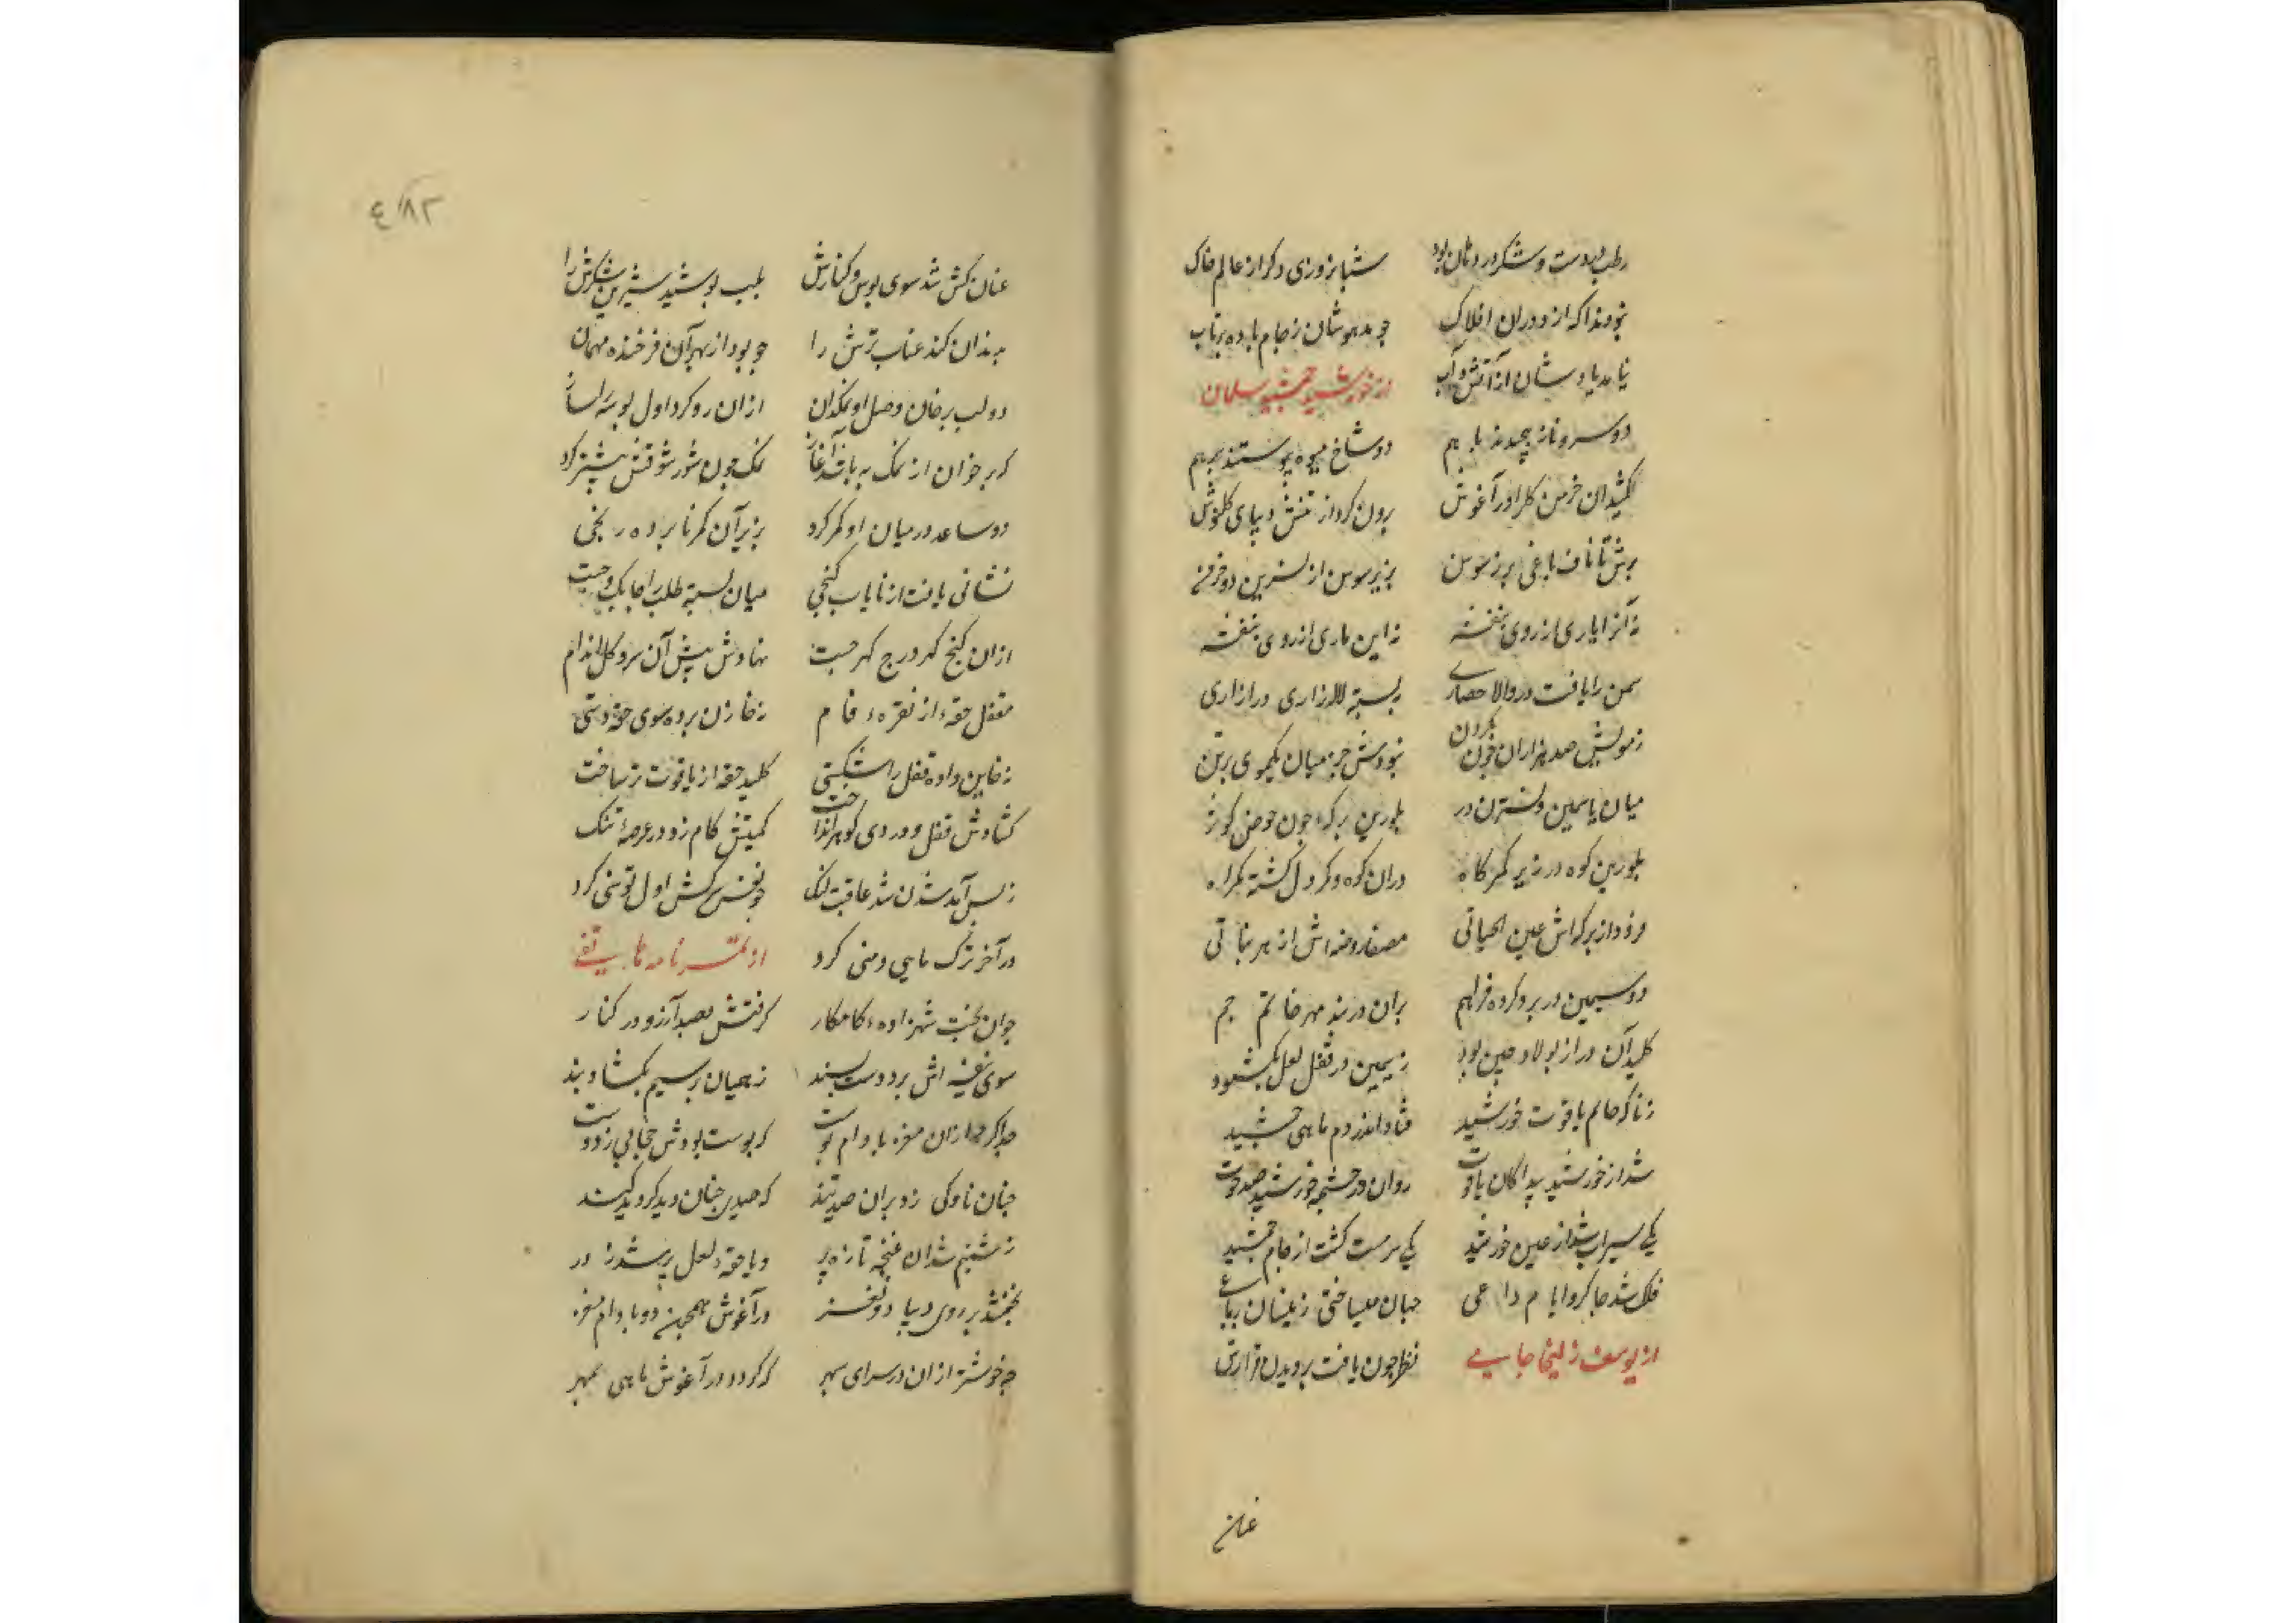 رطب بر دست و شکر در دهان بود شبانروزی دکر از عالم خاک
نبودند آکه از دوران افلاک چو مدهوشان ز جام باده ناب
نیامد یادشان از آتش و آب از خورشید جمشید سلمان
دو سرو ناز پیچیدند با هم دو شاخ میوه پیوستند بر هم
کشید آن خرمن کل را در آغوش برون کرد از تنش دیبای کلپوش
برش تا ناف باغی پر ز سوسن بزیر سوسن از نسرین دو خرمن
نه آنرا یاری از روی بنفشه نه این ماری از روی بنفشه
سمن را یافت در والا حصاری بسته لاله زاری در ازاری
ز مویش صد هزاران خون بکردن نبودش جز میان یکموی بر تن
میان یاسمین و نسترن در بلورین برکه چون حوض کوثر
بلورین کوه در زیر کمرگاه در آن کوه و کمر دل کشته کمراه
فرود از برکه اش عین الحیاتی مصفا روضه اش از هر نباتی
دو سیمین در برو کرده فراهم بر آن در بند مهر خاتم جم
کلید آن در از پولاد چین بود ز سیمین در قفل لعل بکشود
ز ناکه خاتم یاقوت خورشید فتاد اندر دم ماهی جمشید
شد از خورشید پیدا کان یاقوت روان در چشمه خورشید شد حوت
یکی سیراب شد از عین خورشید یکی سرمست کشت از جام جمشید
فلک شد چاکر و ایام داعی جهان میساختی زینسان رباعی
از یوسف زلیخا جامی نظر چون یافت بر دیدن قرارش
عنان
٤١٨٢
عنان کش شد سوی بوس و کنارش بلب بوسید شیرین شکرش را
بدندان کند عناب ترش را چو بود از بهر آن فرخنده مهمان
دو لب بر خوان وصل او نمکدان از آن رو کرد اول بوسه را ساز
که بر خوان از نمک به باشد آغاز نمک چون شور شوقش بیشتر کرد
دو ساعد در میان او کمر کرد بزیر آن کمر نابرده رنجی
نشانی یافت از نایاب کنجی میان بسته طلب را چابک و چست
از آن کنج کهر درج کهر جست نهادش پیش آن سرو کل اندام
مقفل حقه از نقره خام نه خازن برده سوی حقه دستی
نه خاین داده قفلش را شکستی کلید حقه از یاقوت تر ساخت
کشادش قفل و در وی کوهر انداخت کمیتش کام زد در عرصه تنک
ز بس آمد شدن شد عاقبت لنک چو نفس سرکش اول توسنی کرد
در آخر ترک مایی و منی کرد از تمرنامه هاتفی
جوان بخت شهزاده کامکار کرفتش بصد آرزو در کنار
سوی نیفه اش برد دست پسند ز همیان پر سیم بکشاد بند
جدا کرد از آن مغز بادام پوست که پوست بودش حجابی ز دوست
چنان ناوکی زد بر آن صید بند که صیدی چنان دید کردید کیسند
ز شبنم شد آن غنچه تازه پر ویا حقه لعل پر شد ز در
بخفتند بر روی دیبا دو نغز در آغوش همچون دو بادام مغز
چه خوشتر از آن در سرای سپهر که کردد در آغوش ماهی بمهر